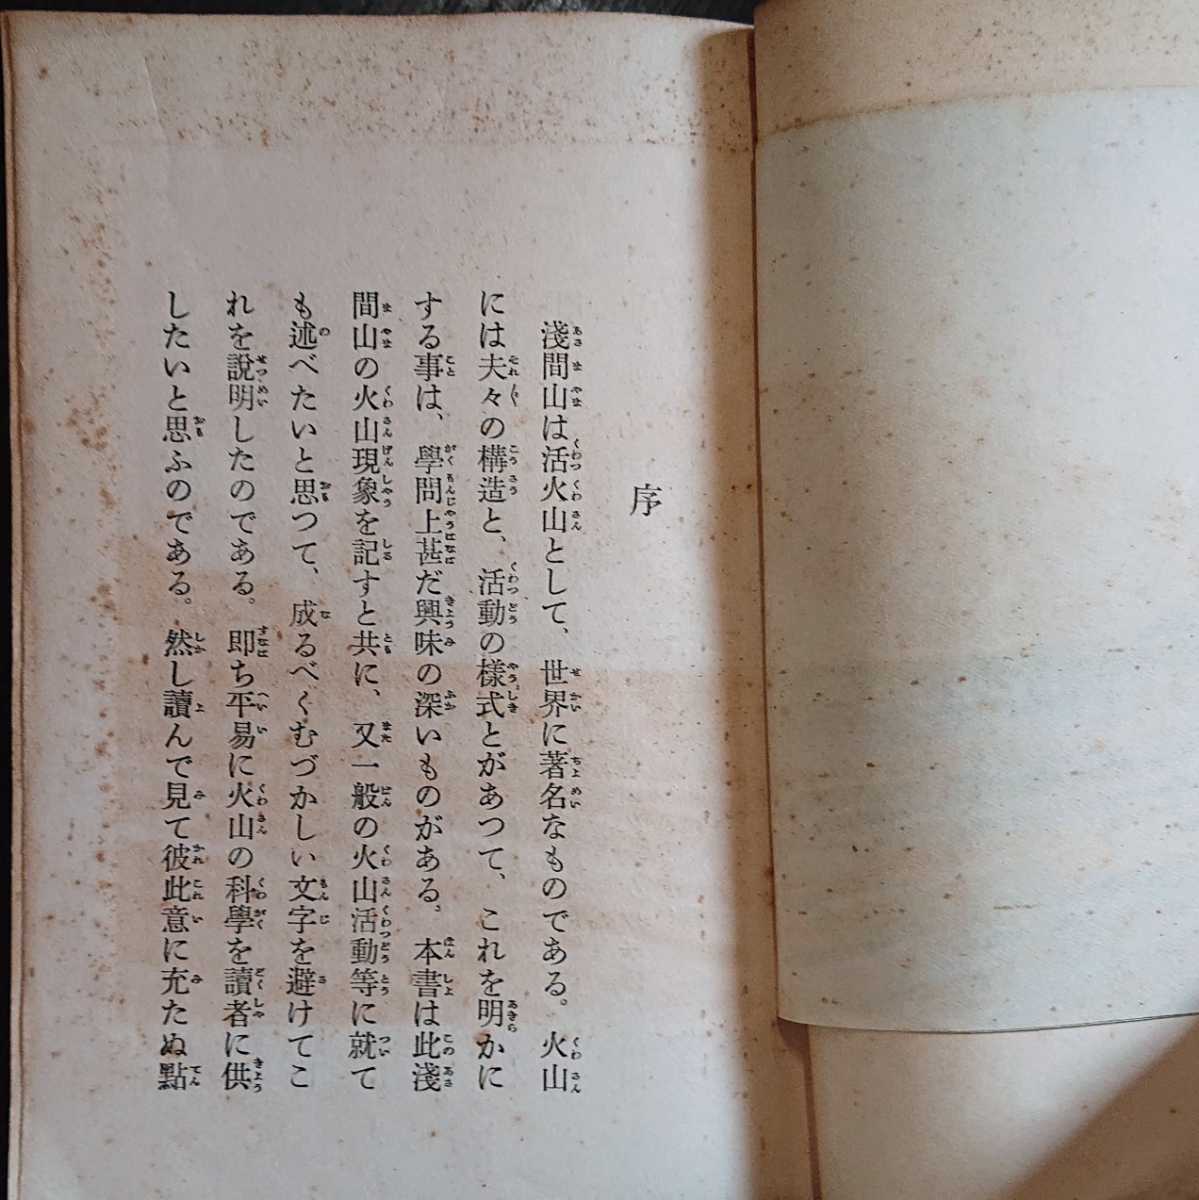 序
淺間山は活火山として、世界に著名なものである。火山
には夫々の構造と、活動の樣式とがあつて、これを明かに
する事は、學問上甚だ興味の深いものがある。本書は此淺
間山の火山現象を記すと共に、又一般の火山活動等に就て
も述べたいと思つて、成るべくむづかしい文字を避けてこ
れを說明したのである。卽ち平易に火山の科學を讀者に供
したいと思ふのである。然し讀んで見て彼此意に充たぬ點